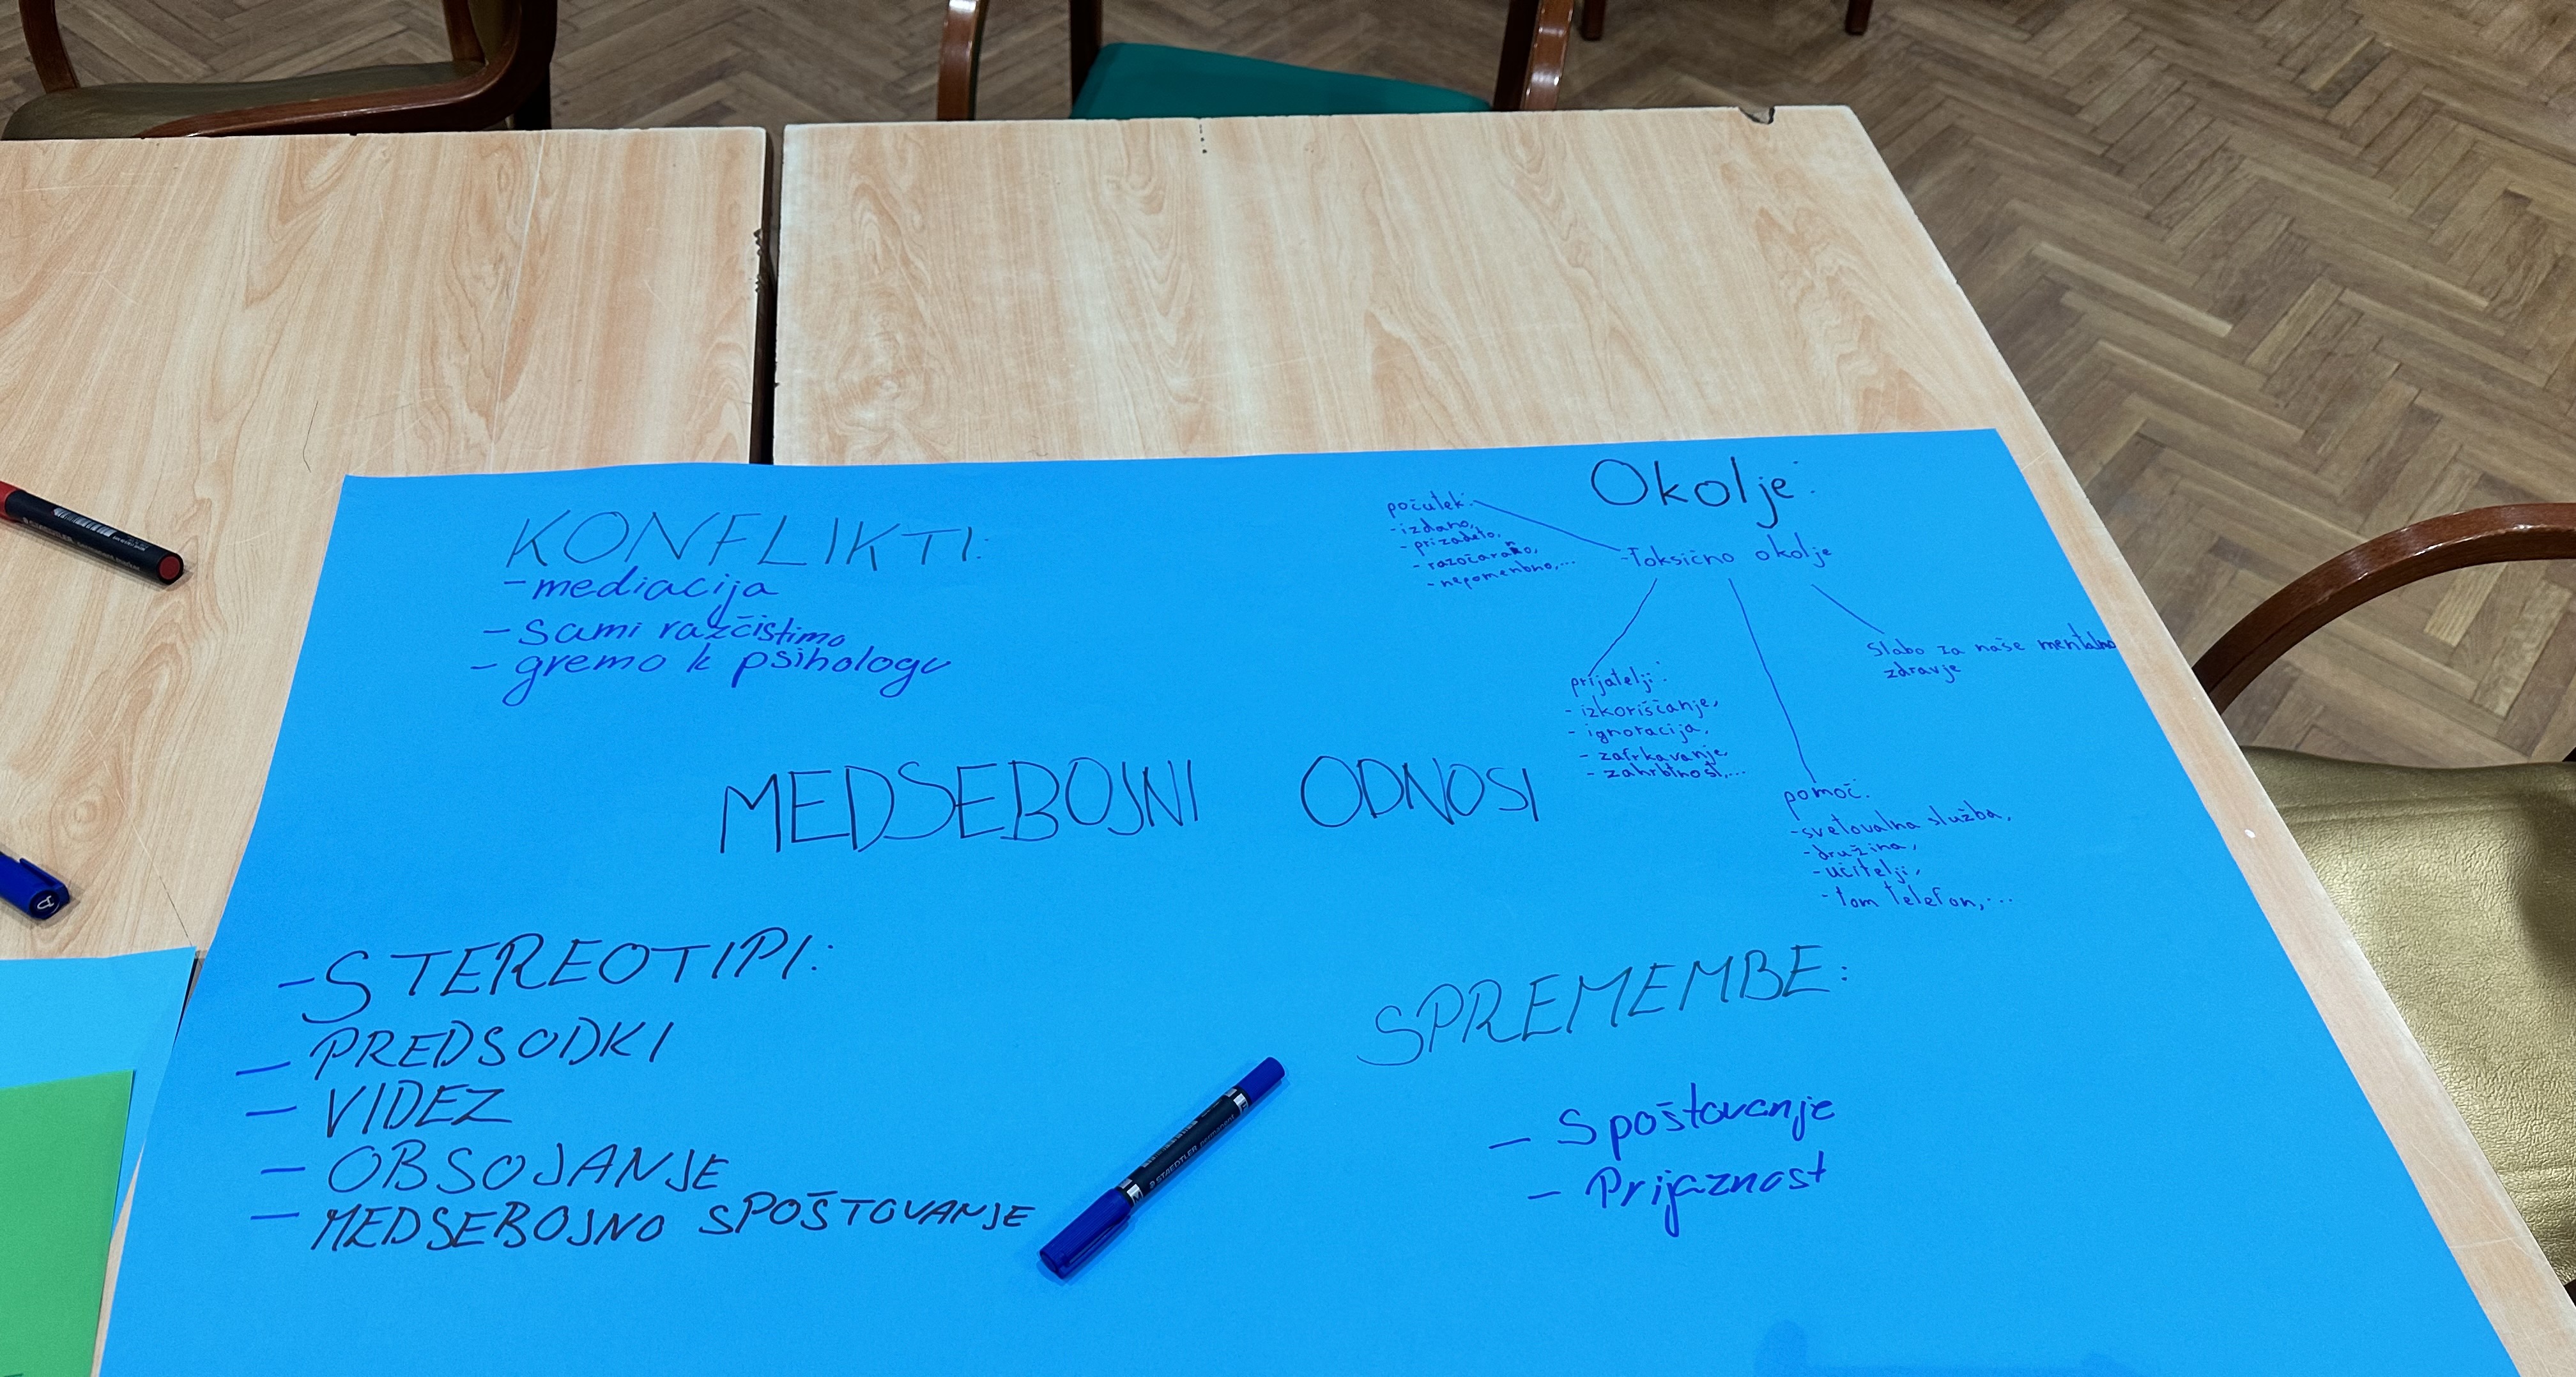 KONFLIKTI:
- mediacija
- sami razčistimo
- gremo k psihologu
Okolje:
-Toksično okolje
počutek:
- izdano,
- prizadeto,
- razočarano,
- nepomenbno,...
slabo za naše mentalno
zdravje
prijatelji:
- izkoriščanje,
- ignoracija,
- zafrkavanje,
- zahrbtnost,...
pomoč:
-svetovalna služba,
-družina,
-učitelji,
-tom telefon,...
MEDSEBOJNI ODNOSI
-STEREOTIPI:
- PREDSODKI
- VIDEZ
- OBSOJANJE
- MEDSEBOJNO SPOŠTOVANJE
SPREMEMBE:
- Spoštovanje
- Prijaznost
STAEDTLER permanent